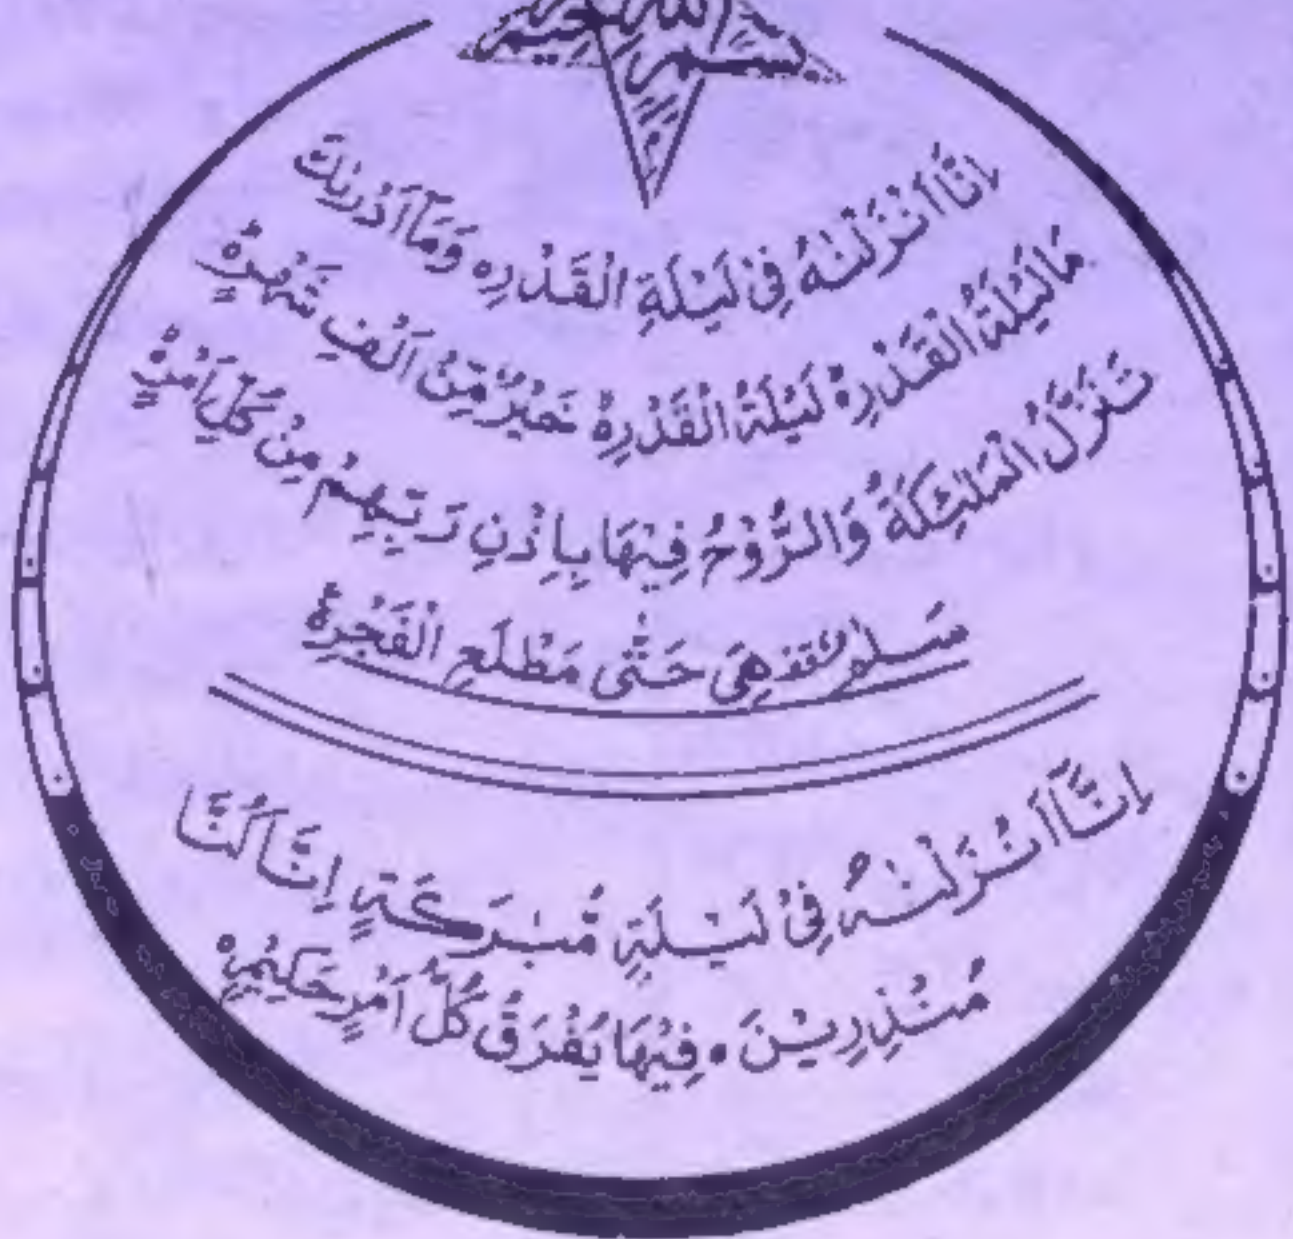 بسم الله
اِنَّآ اَنْزَلْنٰهُ فِىْ لَيْلَةِ الْقَدْرِ ہ وَمَآ اَدْرٰىكَ
مَا لَيْلَةُ الْقَدْرِ ہ لَيْلَةُ الْقَدْرِ ہ خَيْرٌ مِّنْ اَلْفِ شَهْرٍ ہ
تَنَزَّلُ الْمَلٰٓئِكَةُ وَالرُّوْحُ فِيْهَا بِاِذْنِ رَبِّهِمْ مِنْ كُلِّ اَمْرٍ ہ
سَلٰمٌ هِىَ حَتّٰى مَطْلَعِ الْفَجْرِ ہ
اِنَّآ اَنْزَلْنٰهُ فِىْ لَيْلَةٍ مُّبٰرَكَةٍ اِنَّا كُنَّا
مُنْذِرِيْنَ ہ فِيْهَا يُفْرَقُ كُلُّ اَمْرٍ حَكِيْمٍ ہ